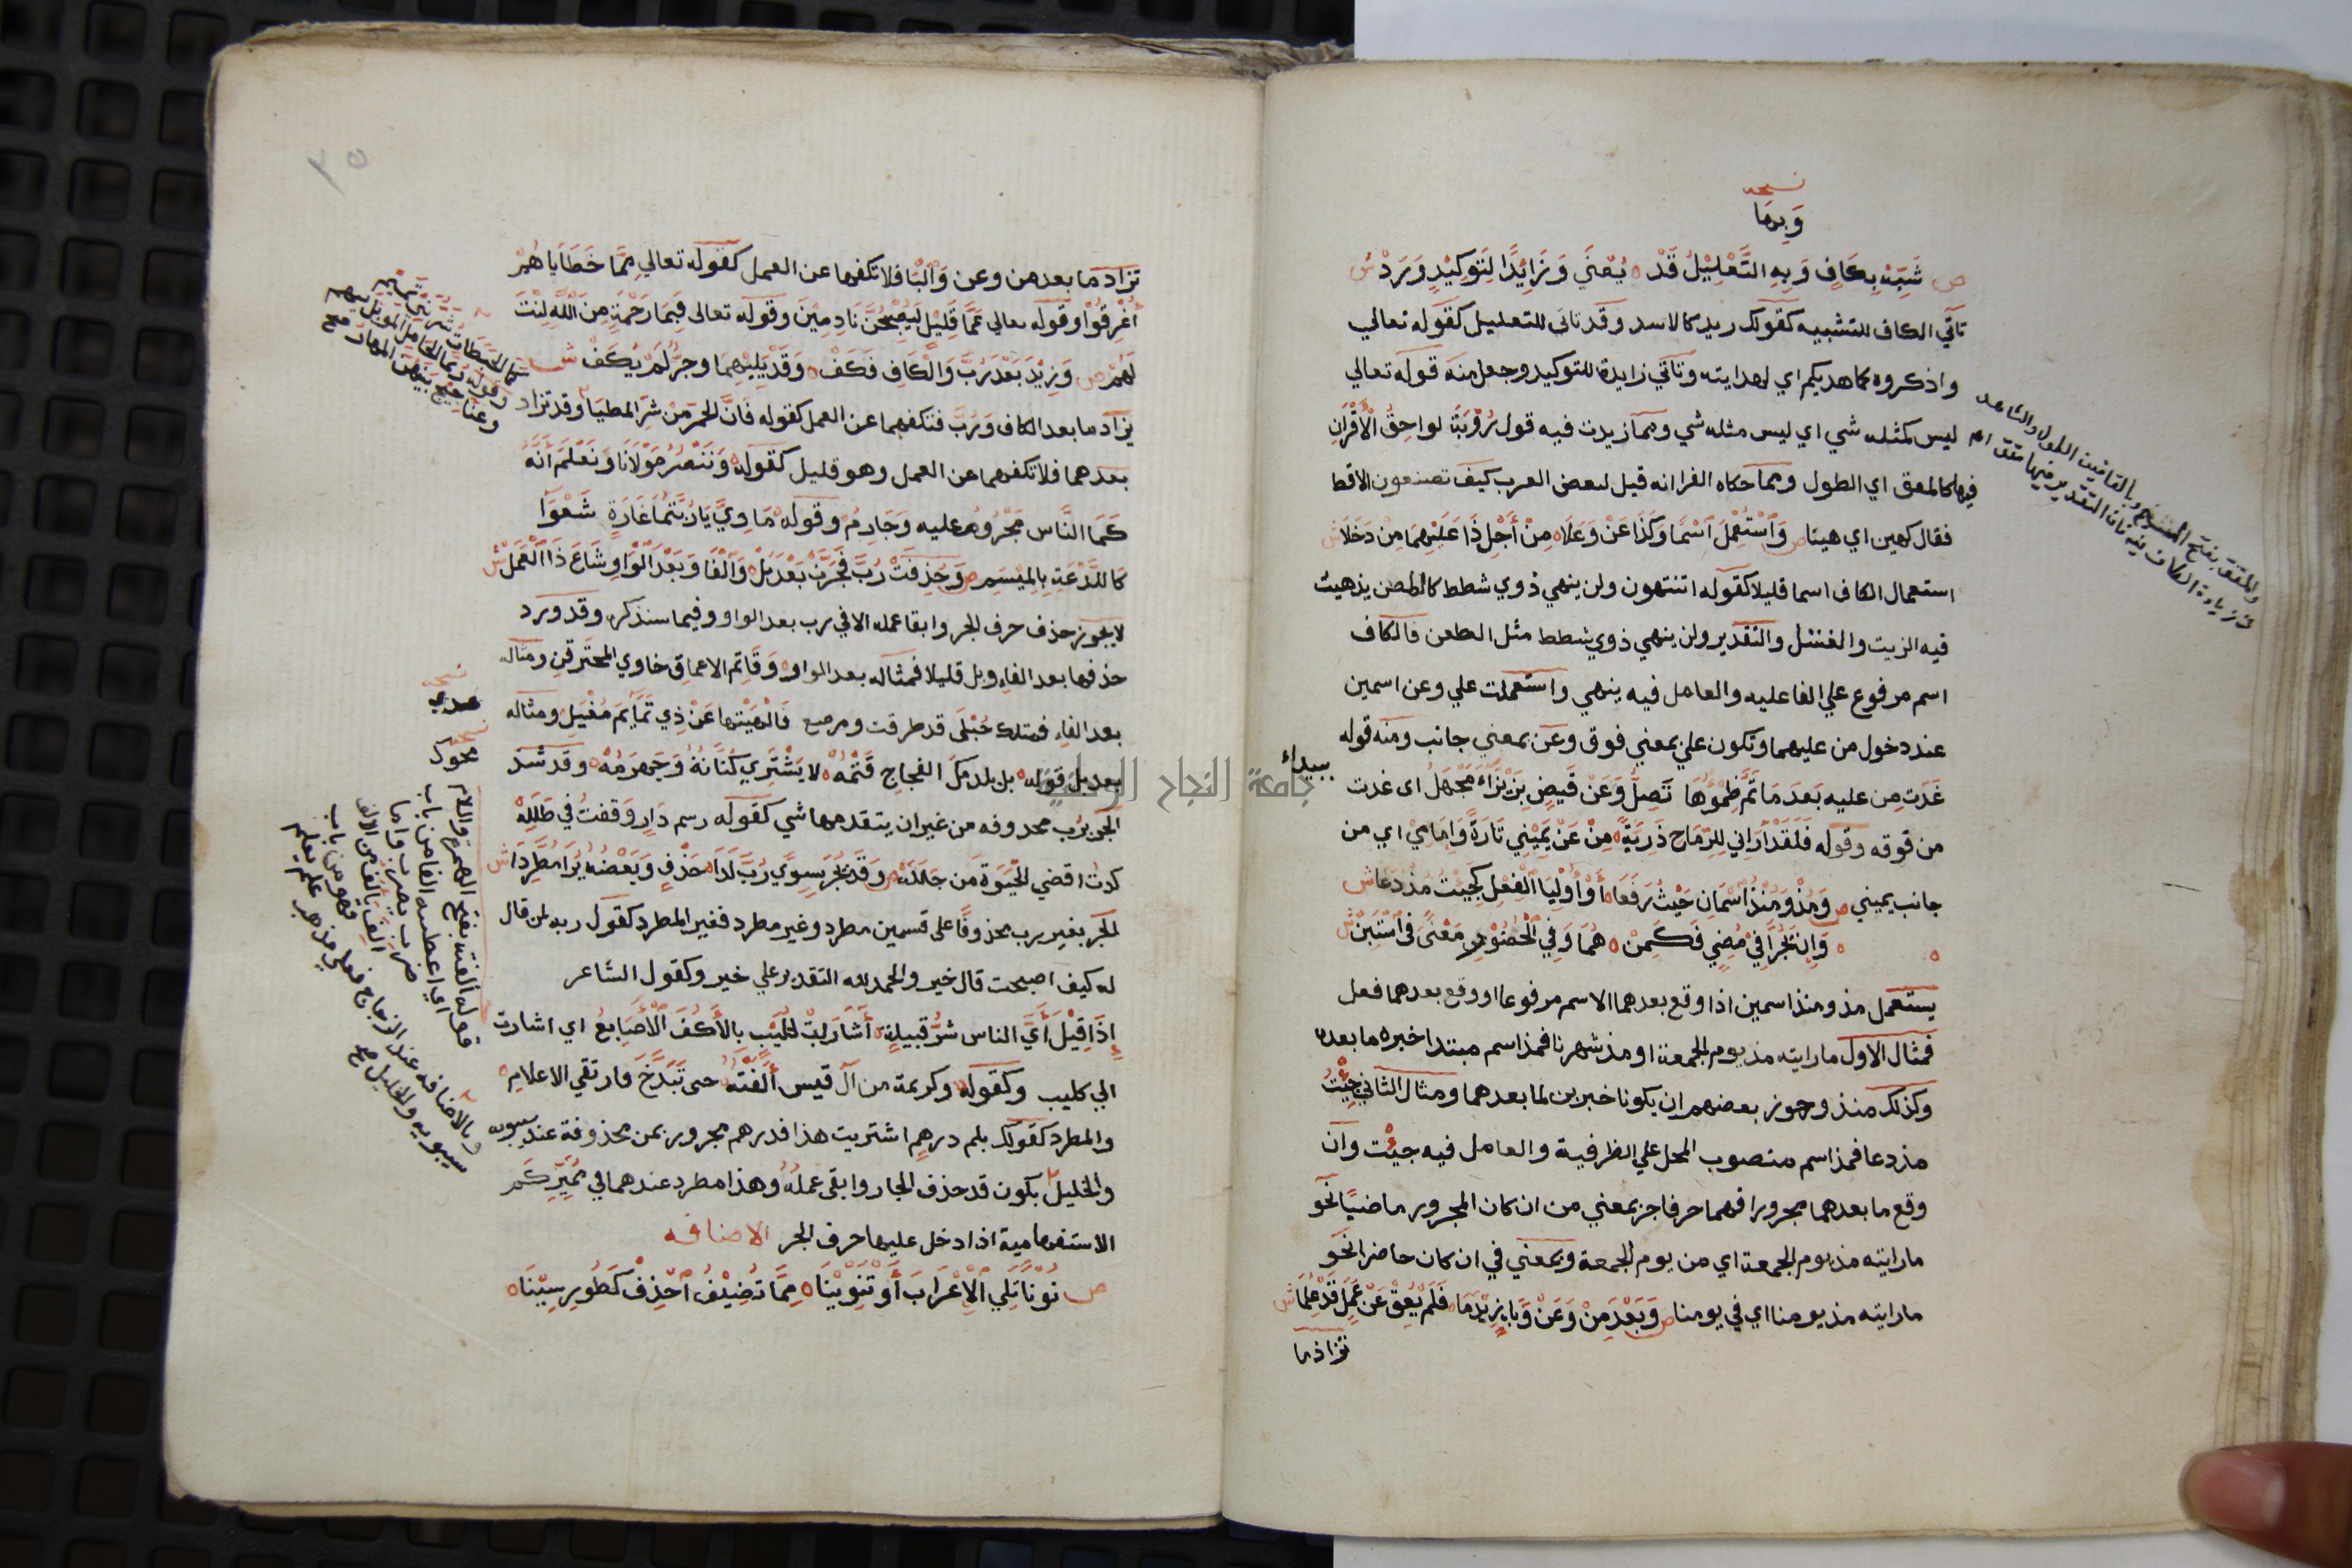 نسخه
وربما
ص شَبِّهْ بِكَافٍ وَبِهِ التَّعْلِيْلُ قَدْ ه يُعْنَى وَزَائِدًا لِتَوكِيْدٍ وَرَدْ ش
تأتي الكاف للتشبيه كقولك زيد كالاسد وقد تاتي للتعليل كقوله تعالي
واذكروه كما هديكم اي لهدايته وتأتي زايدة للتوكيد وجعل منه قوله تعالي
ليس كمثله شي اي ليس مثله شي ومما زيدت فيه قول رُوْبَةَ لواحِقُ الْأَقْرَابِ
فيها كالمقق اي الطول ومما حكاه الفرا انه قيل لبعض العرب كيف تصنعون الاقط
فقال كهين اي هينا ص وَاسْتُعْمِلَ اسْمًا وَكَذَا عَنْ وَعَلَى ه مِنْ أَجْلِ ذَا عَلَيْهِمَا مِنْ دَخَلَا ش
استعمال الكاف اسما قليلا كقوله اتنتهون ولن ينهي ذوي شطط كالطعن يذهب
فيه الزيت والفتل والتقدير ولن ينهي ذوي شطط مثل الطعن فالكاف
اسم مرفوع علي الفاعليه والعامل فيه ينهي واستعملت علي وعن اسمين
عند دخول من عليهما وتكون علي بمعني فوق وعن بمعني جانب ومنه قوله
غَدَتْ مِن عليه بَعدَ مَا تَمَّ ظِمْؤُهَا تَصِلُّ وَعَنْ قَيضٍ بِزَيْزَاءَ مَجْهَلُ اى غدت
ببيداء
من فوقه وقوله فَلَقَدْ أَرَانِي لِلرِّمَاحِ ذَرِيَّةً ه مِنْ عَنْ يَمِيْنِي تَارَةً وَامَامِيْ اي من
جانب يميني ص وَمُذْ وَمُنْذُ اسْمَانِ حَيْثُ رَفَعَا ه أَوْ أُوْلِيَا الْفِعْلَ كَجِئْتُ مُذْ دَعَا ش
ه وَإِنْ يَجُرَّا فِيْ مُضِيٍ فَكَمِنْ ه هُمَا وَفِي الْحُضُوْرِ مَعْنَى فِى اسْتَبِنْ ش
يستعمل مذ ومنذ اسمين اذا وقع بعدهما الاسم مرفوعا او وقع بعدهما فعل
فمثال الاول ما رايته مذ يوم الجمعة او مذ شهرنا فمذ اسم مبتدا خبره ما بعده
وكذلك منذ وجوز بعضهم ان يكونا خبرين لما بعدهما ومثال الثاني جِئْتُ
مذ دعا فمذ اسم منصوب المحل علي الظرفية والعامل فيه جيئت وان
وقع ما بعدهما مجرورا فهما حرفا جر بمعني من ان كان المجرور ماضيًا نحو
ما رايته مذ يوم الجمعة اي من يوم الجمعة وبمعني في ان كان حاضرا نحو
ما رايته مذ يومنا اي في يومنا ص وَبَعْدَ مِنْ وَعَنْ وَبَاءٍ زِيْدَ مَا ه فَلَمْ يَعُقْ عَنْ عَمَلٍ قَدْ عُلِمَا ش
تزاد ما
٣٥
تزاد ما بعد من وعن وَالْبَا فلا تكفها عن العمل كقوله تعالي مِمَّا خَطَايَاهُمْ
أُغْرِقُوْا وقوله تعالي عَمَّا قَلِيْلٍ لَيُصْبِحُنَّ نَادِمِيْنَ وقوله تعالى فَبِمَا رَحْمَةٍ مِنَ اللَّهِ لِنْتَ
لَهُمْ ص وَزِيْدَ بَعْدَ رُبَّ وَالْكَافِ فَكَفّْ ه وَقَدْ يَلِيْهِمَا وجَرٌّ لَمْ يُكَفّْ ش
يزاد ما بعد الكاف وَرُبَّ فتكفهما عن العمل كقوله فَانَّ الحُمْرَ مِنْ شَرِّ المطَيَا وقد تزاد
بعدهما فلا تكفهما عن العمل وهو قليل كقوله وَنَنْصُرُ مَوْلَانَا وَنَعْلَمَ أَنَّهُ
كَمَا النَّاسِ مَجْرُومٌ عليه وَجَارِمُ وقوله مَاوِيَّ يَا رُبَّتَمَا غَارَةٍ شَعْوَا
كَاللَّدْعَةِ بِالمِيْسَمِ ص وَحُذِفَتْ رُبَّ فَجَرَّتْ بَعْدَ بَلْ وَالْفَا وَبَعْدَ الْوَاوِ شَاعَ ذَا الْعَمَلْ ش
لا يجوز حذف حرف الجر وابقا عمله الا في رب بعد الواو وفيما سنذكره وقد ورد
حذفها بعد الفاء وبل قليلا فمثاله بعد الواو وَقَاتِمِ الاعماقِ خاوي المخترقن ومثاله
بعد الفاء فمثلك حُبْلَى قد طرقت ومرضع فَالْهَيْتُها عَنْ ذِي تَمَايِمَ مُغْيَلِ ومثاله
بعد بل قوله بل بلد ملَ الفجاج قَتَمُهْ لا يشْتَرِي كَتَّانَهُ وَجَهرَمُهْ ه وقد شذ
الجر برب محذوفه من غير ان يتقدمها شي كقوله رسم دَارٍ وَقَفتُ فِي طَلَلِهْ
كدت اقضي الحَيَوةَ مَن جَلَلِهْ ص وَقَدْ يُجَرُّ بِسِوَي رُبَّ لَدَا ه حَذْفٍ وَبَعْضُهُ يُرَا مُطَّرِدَا ش
الجر بغير رب محذوفًا على قسمين مطرد وغير مطرد فغير المطرد كقول ربه لمن قال
له كيف اصبحت قال خير والحمد لله التقدير علي خير وكقول الشاعر
إِذَا قِيْلَ أَيُّ الناس شَرُّ قبيلةٍ ه أَشَارَتْ كُلَيْبٍ بالأَكُفِّ الْأَصَابِعُ اي اشارت
الي كليب وكقوله وكريمة من آل قيس أَلَّفْتُهُ حتى تَبَذَّخَ فارتقي الاعلامِ ه
والمطرد كقولك بكم درهمٍ اشتريت هذا فدرهم مجرور بمن محذوفة عند سيبويه
والخليل بكون قد حذف الجار وابقى عملُهُ وهذا مطرد عندهما في مُمَيِّزِ كَم
الاستفهامية اذا دخل عليها حرف الجر الاضافه
ص نُوْنًا تَلِي الْإِعْرَابَ أَوْ تَنْوِيْنَا ه مِمَّا تُضِيْفُ احْذِفْ كَطُورِ سِيْنَا ه
كما الحبطات شر بني تميم
نسخه
عدي
نسخه
قوله ألفته بفتح الهمزة واللام
اي اعطيته الفا من باب
ضرب يضرب واما